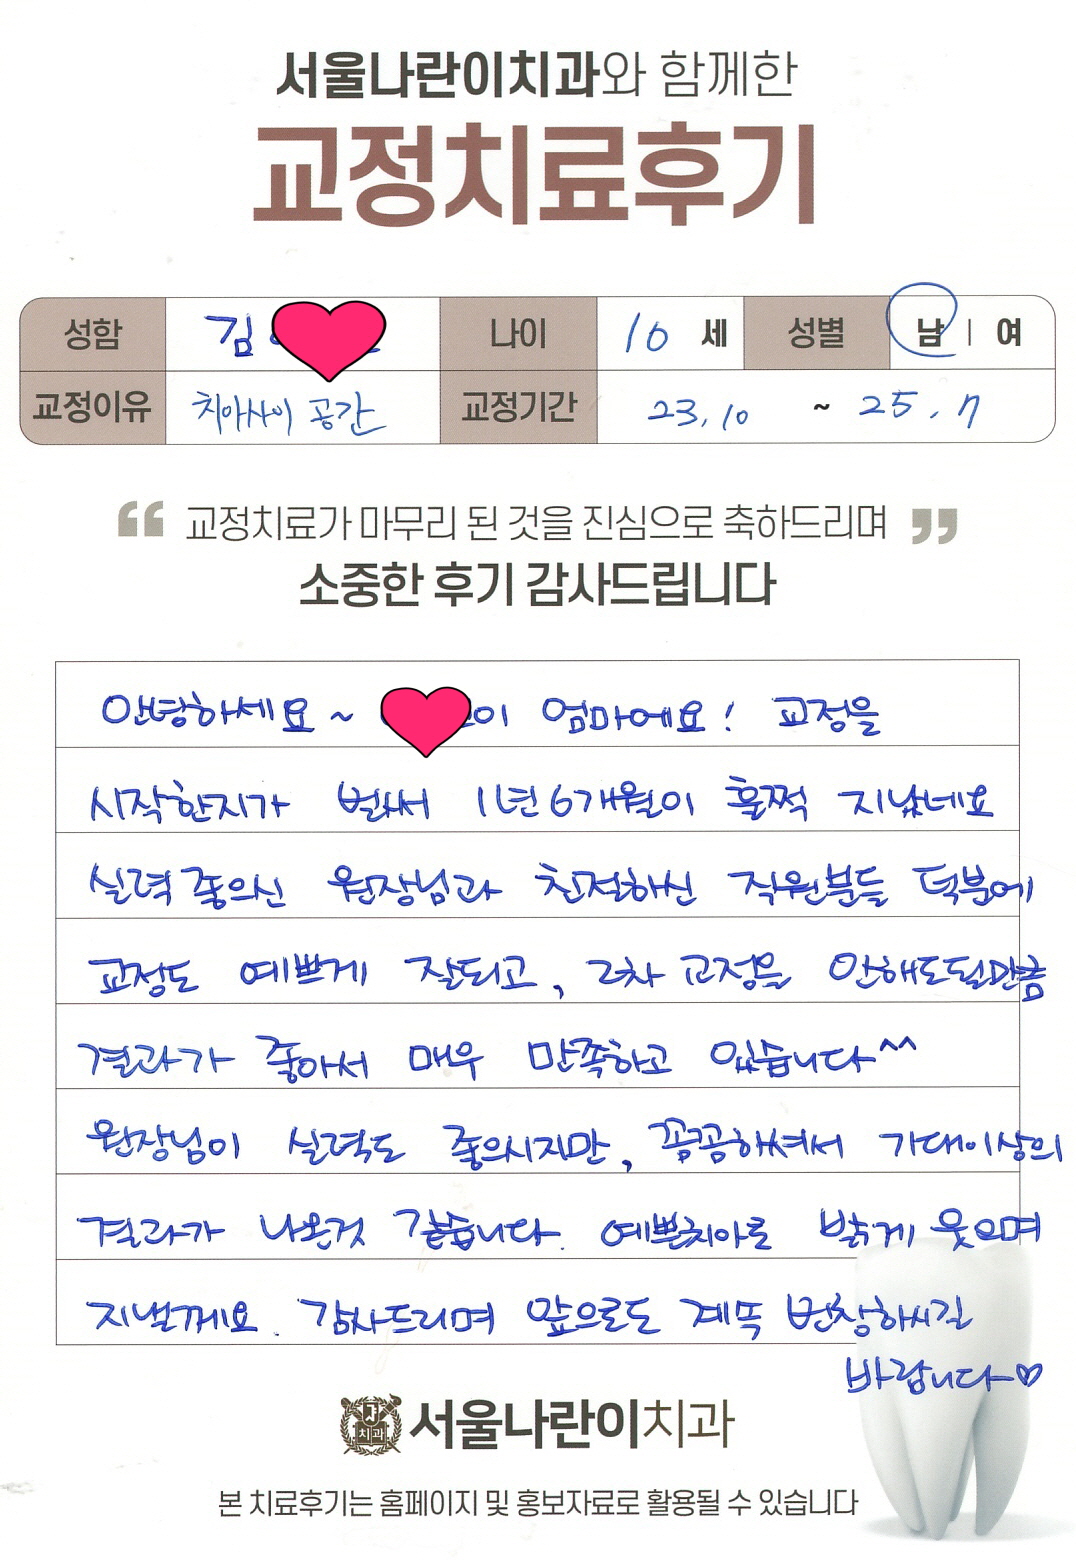 서울나란이치과와 함께한
교정치료후기
성함 김 나이 10 세 성별 남 | 여
교정이유 치아사이 공간 교정기간 23.10 ~ 25.7
“ 교정치료가 마무리 된 것을 진심으로 축하드리며 ”
소중한 후기 감사드립니다
안녕하세요~ 이 엄마에요! 교정을
시작한지가 벌써 1년6개월이 훌쩍 지났네요
실력좋으신 원장님과 친절하신 직원분들 덕분에
교정도 예쁘게 잘되고, 2차 교정을 안해도될만큼
결과가 좋아서 매우 만족하고 있습니다^^
원장님이 실력도 좋으시지만, 꼼꼼하셔서 기대이상의
결과가 나온것 같습니다. 예쁜치아로 밝게 웃으며
지낼께요. 감사드리며 앞으로도 계속 번창하시길
바랍니다♡
치과
서울나란이치과
본 치료후기는 홈페이지 및 홍보자료로 활용될 수 있습니다